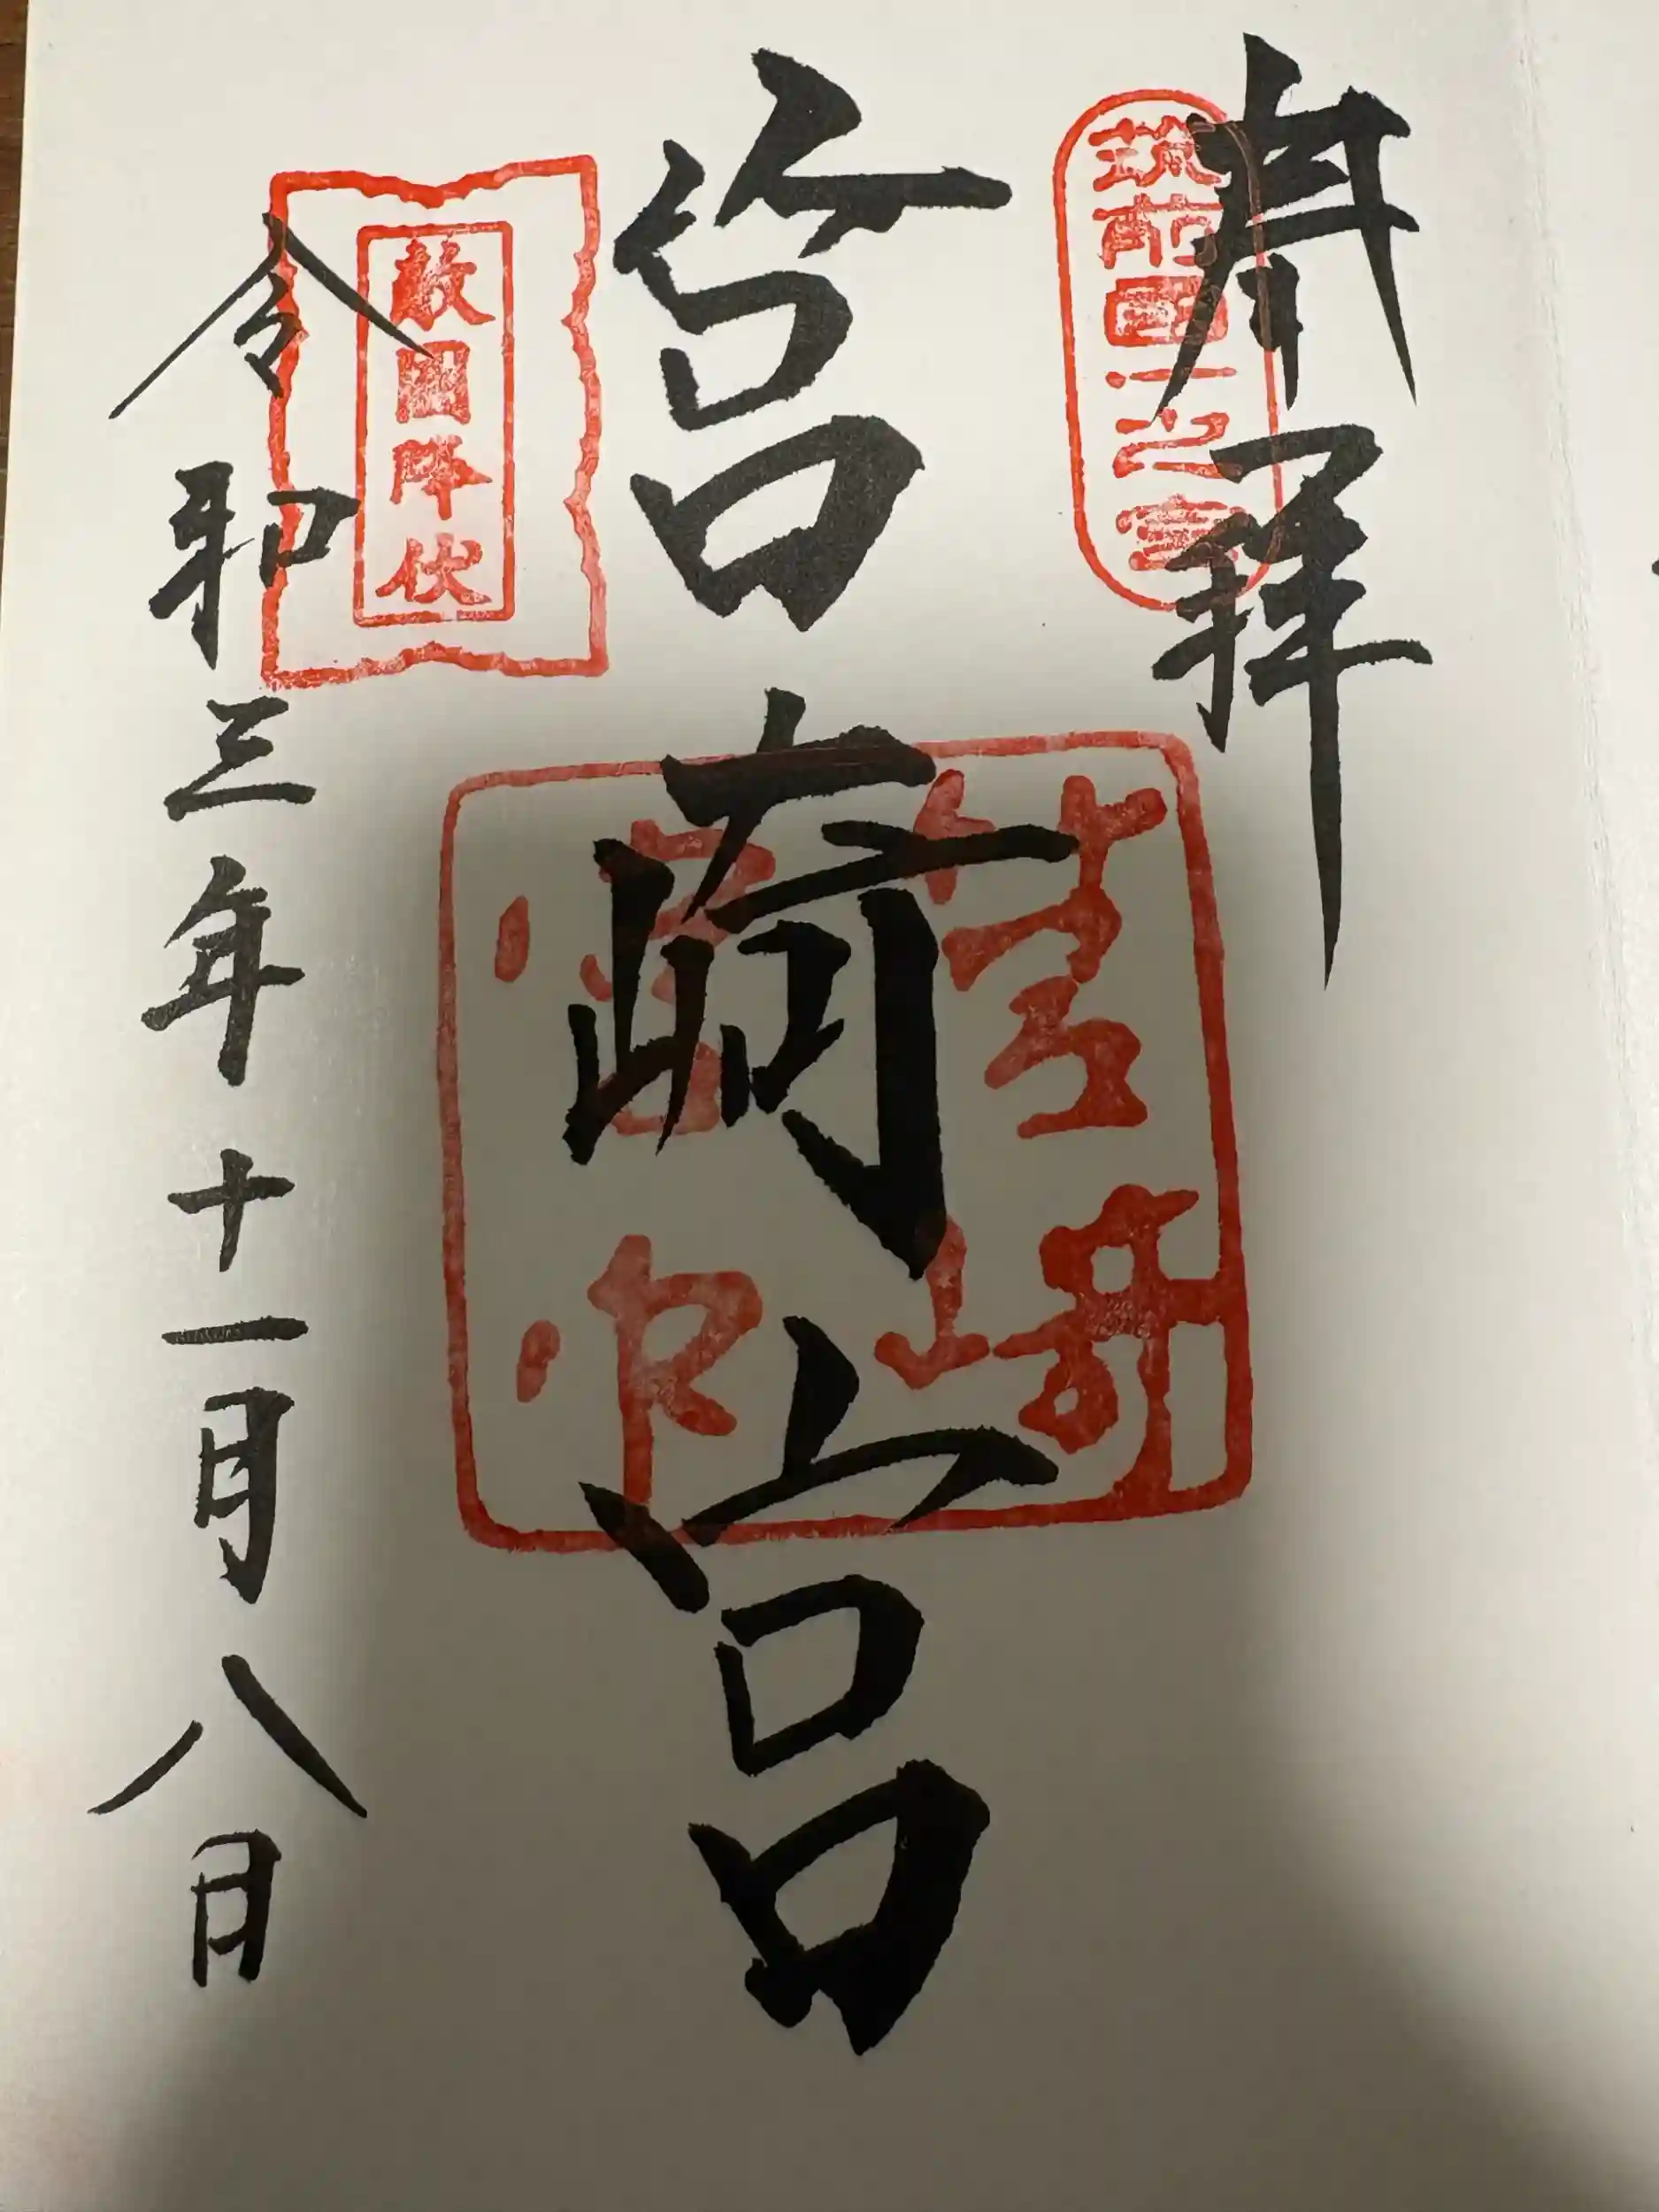 奉拝
筑前國一之宮
筥崎宮
筥崎
宮印
敵國降伏
令和三年十一月八日